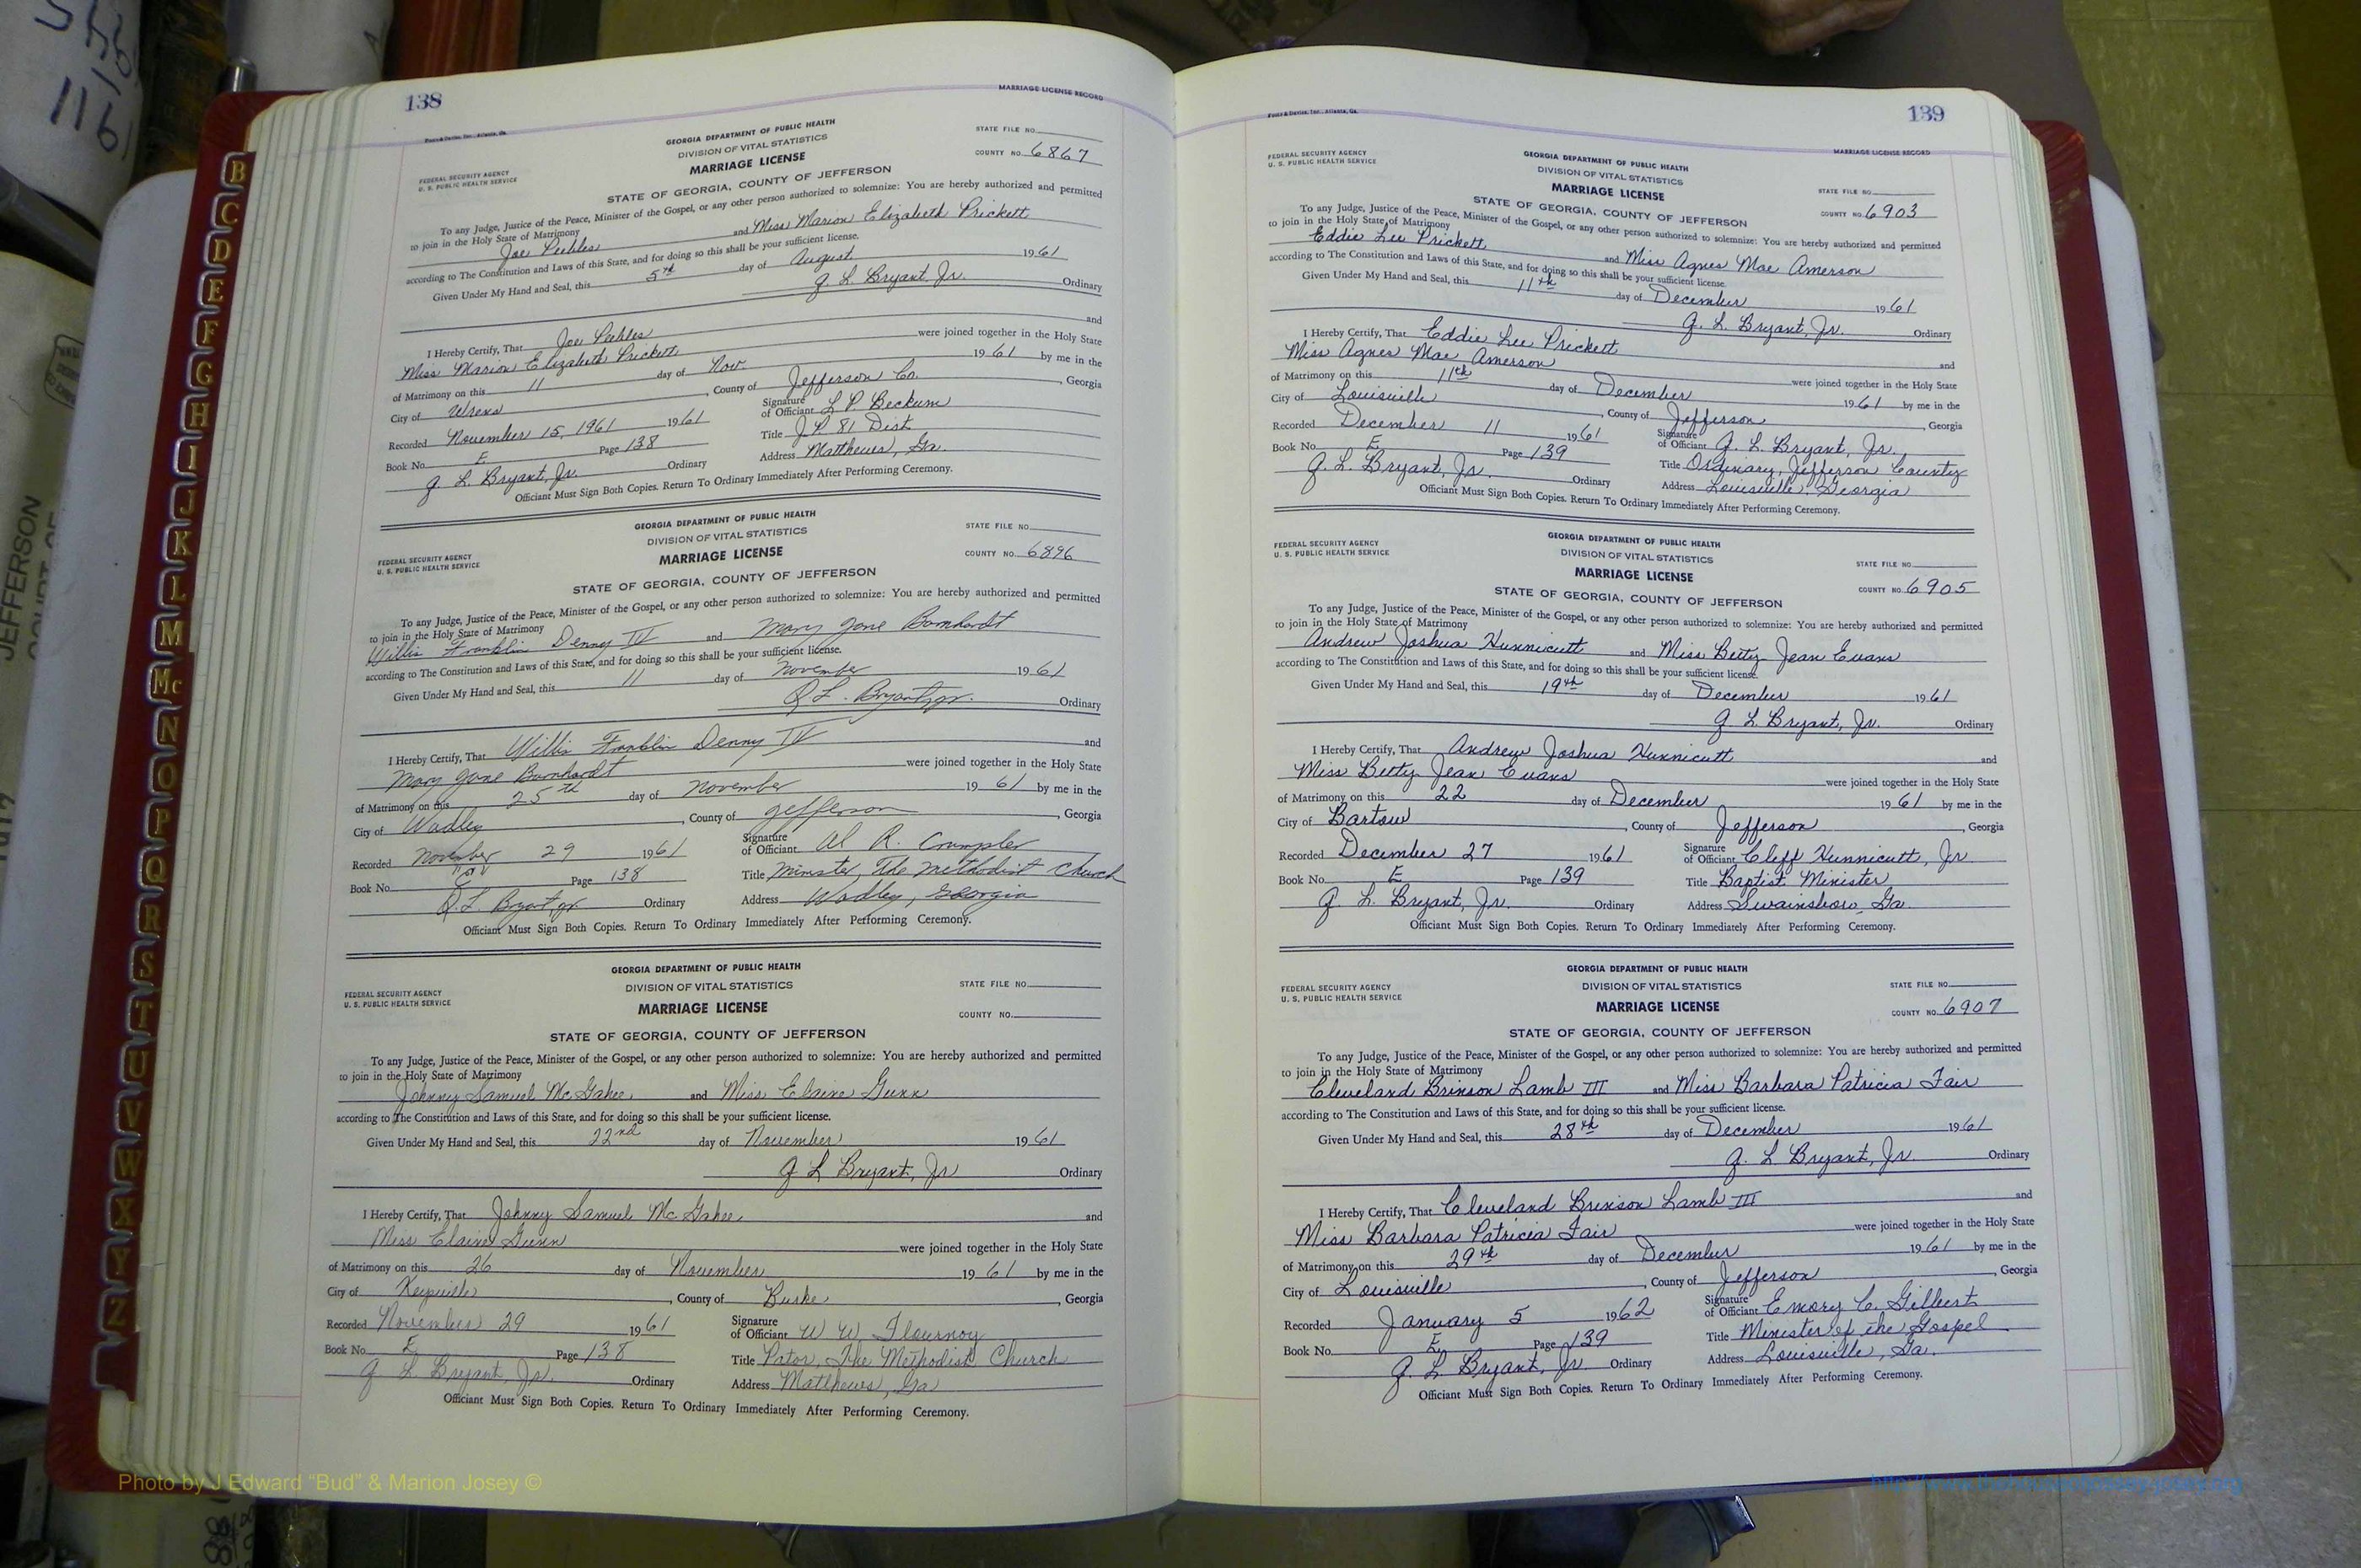 138
MARRIAGE LICENSE RECORD
Foote & Davies, Inc., Atlanta, Ga.
GEORGIA DEPARTMENT OF PUBLIC HEALTH
DIVISION OF VITAL STATISTICS
MARRIAGE LICENSE
STATE OF GEORGIA, COUNTY OF JEFFERSON
FEDERAL SECURITY AGENCY
U. S. PUBLIC HEALTH SERVICE
STATE FILE NO.
COUNTY NO. 6867
To any Judge, Justice of the Peace, Minister of the Gospel, or any other person authorized to solemnize: You are hereby authorized and permitted
to join in the Holy State of Matrimony
Joe Peebles and Miss Marion Elizabeth Prickett
according to The Constitution and Laws of this State, and for doing so this shall be your sufficient license.
Given Under My Hand and Seal, this 5th day of August 1961
Q. L. Bryant, Jr. Ordinary
I Hereby Certify, That Joe Peebles and
Miss Marion Elizabeth Prickett were joined together in the Holy State
of Matrimony on this 11 day of Nov. 1961 by me in the
City of Wrens, County of Jefferson Co., Georgia
Recorded November 15, 1961 1961 Signature of Officiant L P. Beckum
Book No. E Page 138 Title J P 81 Dist
Q. L. Bryant, Jr. Ordinary Address Matthews, Ga.
Officiant Must Sign Both Copies. Return To Ordinary Immediately After Performing Ceremony.
GEORGIA DEPARTMENT OF PUBLIC HEALTH
DIVISION OF VITAL STATISTICS
MARRIAGE LICENSE
STATE OF GEORGIA, COUNTY OF JEFFERSON
FEDERAL SECURITY AGENCY
U. S. PUBLIC HEALTH SERVICE
STATE FILE NO.
COUNTY NO. 6896
To any Judge, Justice of the Peace, Minister of the Gospel, or any other person authorized to solemnize: You are hereby authorized and permitted
to join in the Holy State of Matrimony
Willis Franklin Denny IV and Mary Jane Barnhardt
according to The Constitution and Laws of this State, and for doing so this shall be your sufficient license.
Given Under My Hand and Seal, this 11 day of November 1961
Q. L. Bryant, Jr. Ordinary
I Hereby Certify, That Willis Franklin Denny IV and
Mary Jane Barnhardt were joined together in the Holy State
of Matrimony on this 25th day of November 1961 by me in the
City of Wadley, County of Jefferson, Georgia
Recorded November 29 1961 Signature of Officiant Al R. Crumpler
Book No. E Page 138 Title Minster, The Methodist Church
Q. L. Bryant Jr. Ordinary Address Wadley, Georgia
Officiant Must Sign Both Copies. Return To Ordinary Immediately After Performing Ceremony.
GEORGIA DEPARTMENT OF PUBLIC HEALTH
DIVISION OF VITAL STATISTICS
MARRIAGE LICENSE
STATE OF GEORGIA, COUNTY OF JEFFERSON
FEDERAL SECURITY AGENCY
U. S. PUBLIC HEALTH SERVICE
STATE FILE NO.
COUNTY NO.
To any Judge, Justice of the Peace, Minister of the Gospel, or any other person authorized to solemnize: You are hereby authorized and permitted
to join in the Holy State of Matrimony
Johnny Samuel McGahee and Miss Elaine Gunn
according to The Constitution and Laws of this State, and for doing so this shall be your sufficient license.
Given Under My Hand and Seal, this 22nd day of November 1961
Q L Bryant, Jr Ordinary
I Hereby Certify, That Johnny Samuel McGahee and
Miss Elaine Gunn were joined together in the Holy State
of Matrimony on this 26 day of November 1961 by me in the
City of Keysville, County of Burke, Georgia
Recorded November 29 1961 Signature of Officiant W W Flournoy
Book No. E Page 138 Title Pator, The Methodist Church
Q L Bryant, Jr. Ordinary Address Matthews, Ga
Officiant Must Sign Both Copies. Return To Ordinary Immediately After Performing Ceremony.
139
Foote & Davies, Inc., Atlanta, Ga.
MARRIAGE LICENSE RECORD
FEDERAL SECURITY AGENCY
U. S. PUBLIC HEALTH SERVICE
GEORGIA DEPARTMENT OF PUBLIC HEALTH
DIVISION OF VITAL STATISTICS
MARRIAGE LICENSE
STATE OF GEORGIA, COUNTY OF JEFFERSON
STATE FILE NO.
COUNTY NO. 6903
To any Judge, Justice of the Peace, Minister of the Gospel, or any other person authorized to solemnize: You are hereby authorized and permitted
to join in the Holy State of Matrimony
Eddie Lee Prickett and Miss Agnes Mae Amerson
according to The Constitution and Laws of this State, and for doing so this shall be your sufficient license.
Given Under My Hand and Seal, this 11th day of December 1961
Q. L. Bryant, Jr. Ordinary
I Hereby Certify, That Eddie Lee Prickett and
Miss Agnes Mae Amerson were joined together in the Holy State
of Matrimony on this 11th day of December 1961 by me in the
City of Louisville, County of Jefferson, Georgia
Recorded December 11 1961 Signature of Officiant Q. L. Bryant, Jr.
Book No. E Page 139 Title Ordinary, Jefferson County
Q. L. Bryant, Jr. Ordinary Address Louisville, Georgia
Officiant Must Sign Both Copies. Return To Ordinary Immediately After Performing Ceremony.
GEORGIA DEPARTMENT OF PUBLIC HEALTH
DIVISION OF VITAL STATISTICS
MARRIAGE LICENSE
STATE OF GEORGIA, COUNTY OF JEFFERSON
FEDERAL SECURITY AGENCY
U. S. PUBLIC HEALTH SERVICE
STATE FILE NO.
COUNTY NO. 6905
To any Judge, Justice of the Peace, Minister of the Gospel, or any other person authorized to solemnize: You are hereby authorized and permitted
to join in the Holy State of Matrimony
Andrew Joshua Hunnicutt and Miss Betty Jean Evans
according to The Constitution and Laws of this State, and for doing so this shall be your sufficient license.
Given Under My Hand and Seal, this 19th day of December 1961
Q L Bryant, Jr. Ordinary
I Hereby Certify, That Andrew Joshua Hunnicutt and
Miss Betty Jean Evans were joined together in the Holy State
of Matrimony on this 22 day of December 1961 by me in the
City of Bartow, County of Jefferson, Georgia
Recorded December 27 1961 Signature of Officiant Cleff Hunnicutt, Jr
Book No. E Page 139 Title Baptist Minister
Q. L. Bryant, Jr. Ordinary Address Swainsboro, Ga.
Officiant Must Sign Both Copies. Return To Ordinary Immediately After Performing Ceremony.
GEORGIA DEPARTMENT OF PUBLIC HEALTH
DIVISION OF VITAL STATISTICS
MARRIAGE LICENSE
STATE OF GEORGIA, COUNTY OF JEFFERSON
FEDERAL SECURITY AGENCY
U. S. PUBLIC HEALTH SERVICE
STATE FILE NO.
COUNTY NO. 6907
To any Judge, Justice of the Peace, Minister of the Gospel, or any other person authorized to solemnize: You are hereby authorized and permitted
to join in the Holy State of Matrimony
Cleveland Brinson Lamb III and Miss Barbara Patricia Fair
according to The Constitution and Laws of this State, and for doing so this shall be your sufficient license.
Given Under My Hand and Seal, this 28th day of December 1961
Q. L Bryant, Jr Ordinary
I Hereby Certify, That Cleveland Brinson Lamb III and
Miss Barbara Patricia Fair were joined together in the Holy State
of Matrimony on this 29th day of December 1961 by me in the
City of Louisville, County of Jefferson, Georgia
Recorded January 5 1962 Signature of Officiant Emory C. Gilbert
Book No. E Page 139 Title Minister of the Gospel
Q. L Bryant, Jr. Ordinary Address Louisville, Ga.
Officiant Must Sign Both Copies. Return To Ordinary Immediately After Performing Ceremony.
B
C
D
E
F
G
H
I
J
K
L
M
Mc
N
O
P
Q
R
S
T
U
V
W
X
Y
Z
JEFFERSON
Photo by J Edward “Bud” & Marion Josey ©